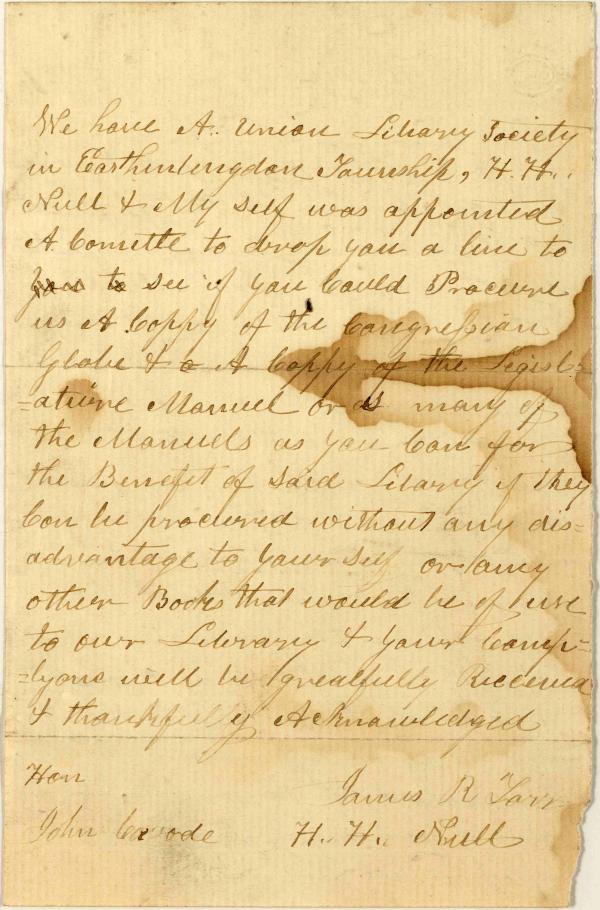 We have A. Union Libary Society
in Easthuntengdon Township, H. H.
Null & My self was appointed
A Comette to drop you a line to
see if you Could Procure
us A Coppy of the Congressian
Globe & A Coppy of the Legisl=
=atuire Manuel or as many of
the Manuels as you Can for
the Benefit of said Libary if they
Can be procured without any dis=
advantage to your self or any
other Books that would be of use
to our Liberary & your Comp=
=lyone will be greatfully Received
& thankfully Acknowledged
Hon
James R Tarr
John Covode
H. H. Null